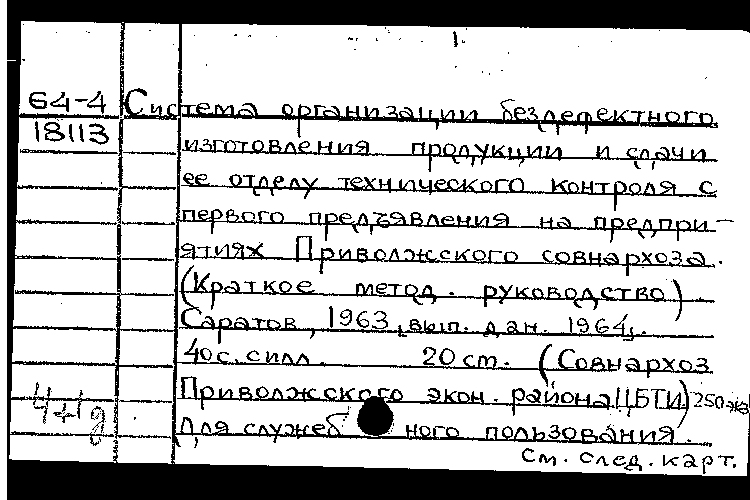 64-4 Система организации бездефектного
18113 изготовления продукции и сдачи
ее отделу технического контроля с
первого предъявления на предпри-
ятиях Приволжского совнархоза.
(Краткое метод. руководство)
Саратов, 1963, вып. дан. 1964,.
40 с. с илл. 20 см. (Совнархоз
Приволжского экон. района ЦБТИ) 250 экз
4+1д Для служебного пользования.
См. след. карт.